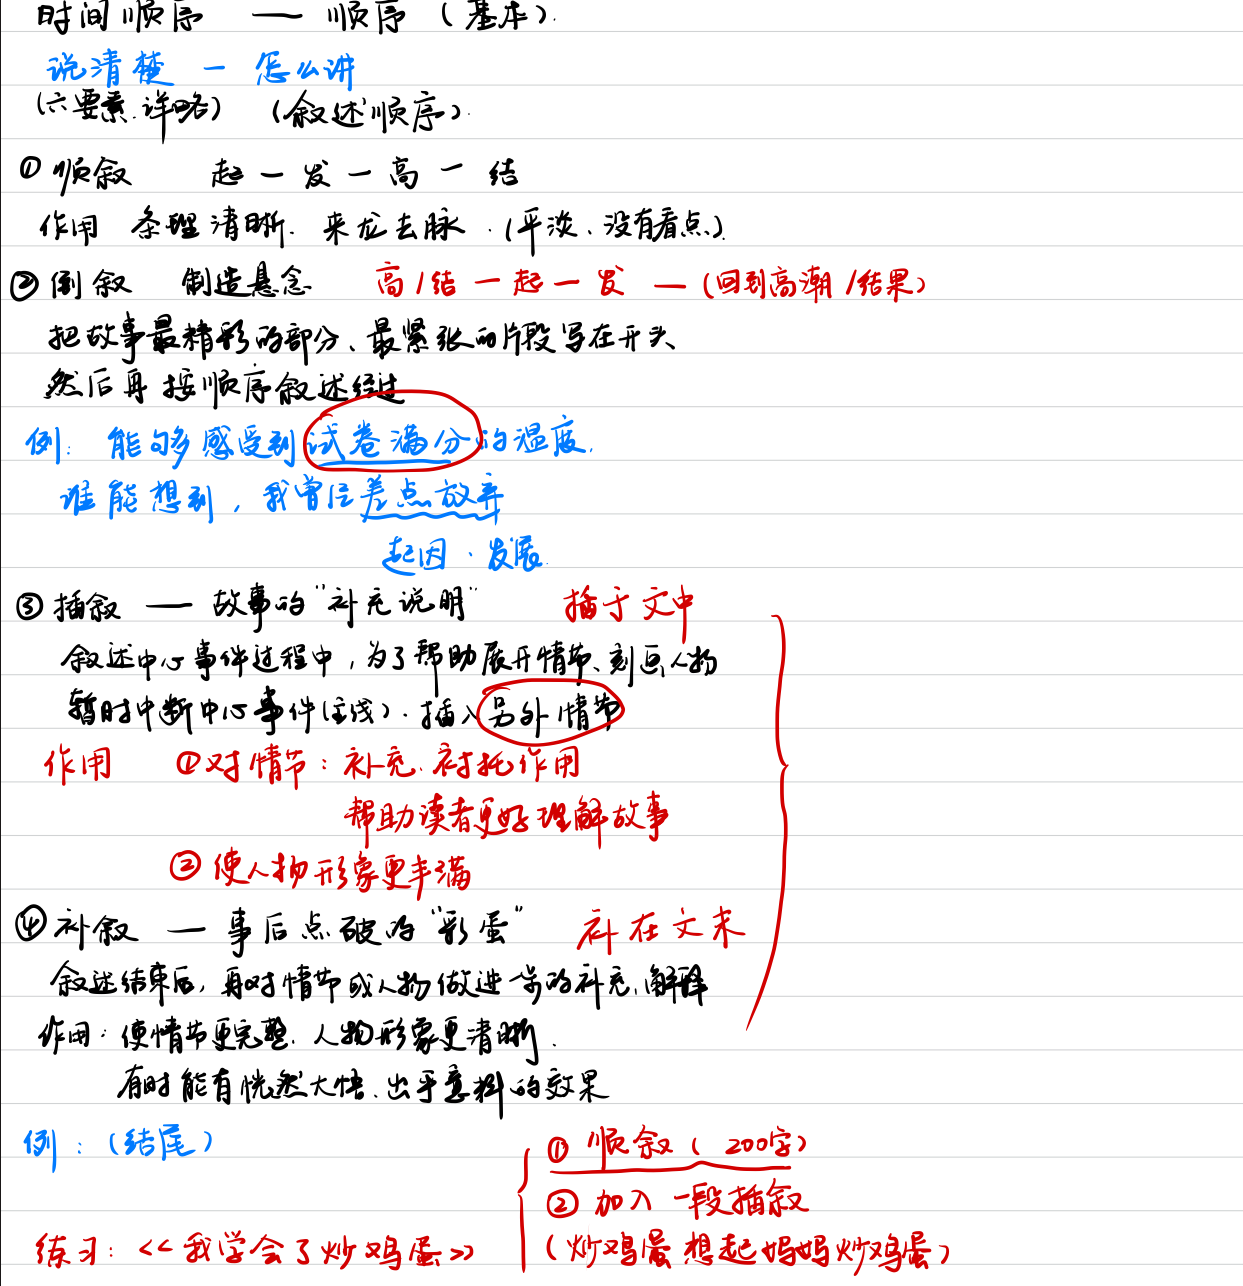 时间顺序 — 顺序（基本）.
说清楚 — 怎么讲
（六要素.详略）（叙述顺序）.
① 顺叙 起一发一高一结
作用 条理清晰. 来龙去脉.（平淡、没有看点）.
② 倒叙 制造悬念 高/结一起一发 —（回到高潮/结果）
把故事最精彩的部分、最紧张的片段写在开头
然后再按顺序叙述经过
例: 能够感受到试卷满分的温度.
谁能想到, 我曾经差点放弃
起因. 发展.
③ 插叙 — 故事的“补充说明” 插于文中
叙述中心事件过程中, 为了帮助展开情节、刻画人物
暂时中断中心事件（主线）. 插入另外情节
作用 ①对情节: 补充. 衬托作用
帮助读者更好理解故事
② 使人物形象更丰满
④ 补叙 — 事后点破的“彩蛋” 补在文末
叙述结束后, 再对情节或人物做进一步的补充、解释
作用: 使情节更完整. 人物形象更清晰.
有时能有恍然大悟、出乎意料的效果
例:（结尾）
① 顺叙（200字）
② 加入一段插叙
练习: <<我学会了炒鸡蛋>>（炒鸡蛋想起妈妈炒鸡蛋）